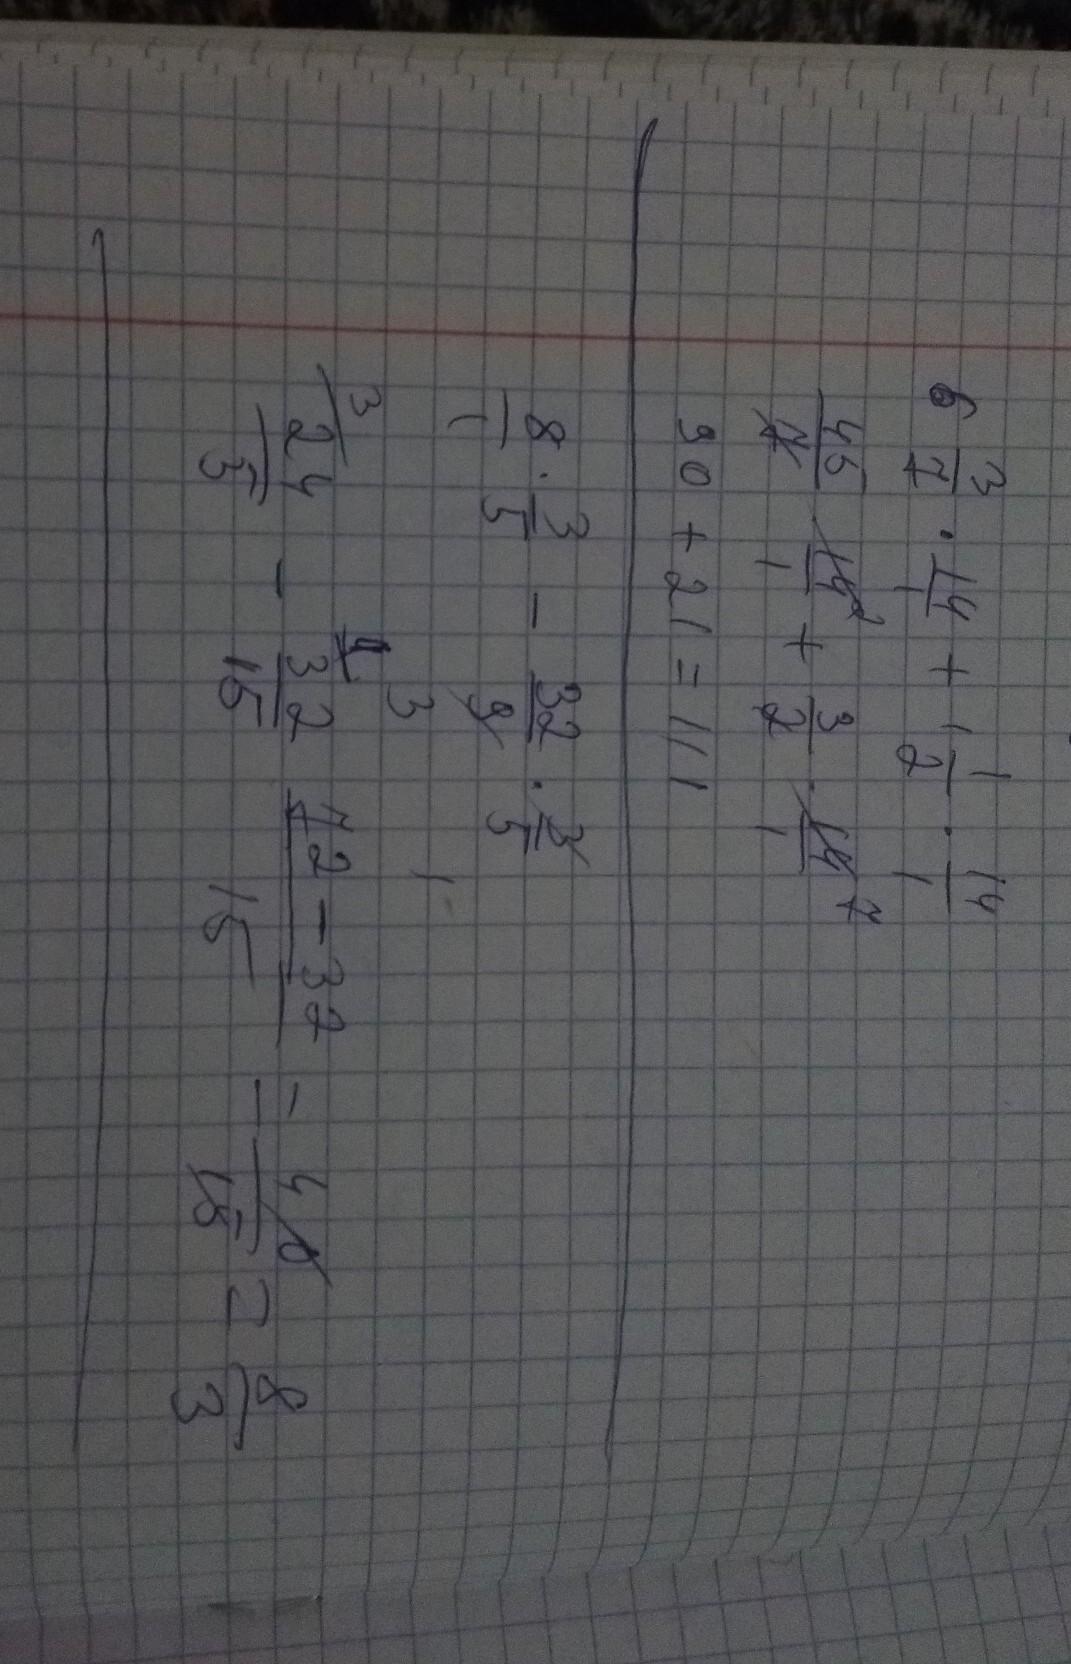 6 3/7 · 14/1 + 1 1/2 · 14/1
45/7 14/1 2 + 3/2 · 14/1 7
90 + 21 = 111
8/1 · 3/5 - 32/9 · 3/5
3 1
3 24/5 - 1 32/15 72-32/15 - 40/15 2 8/3